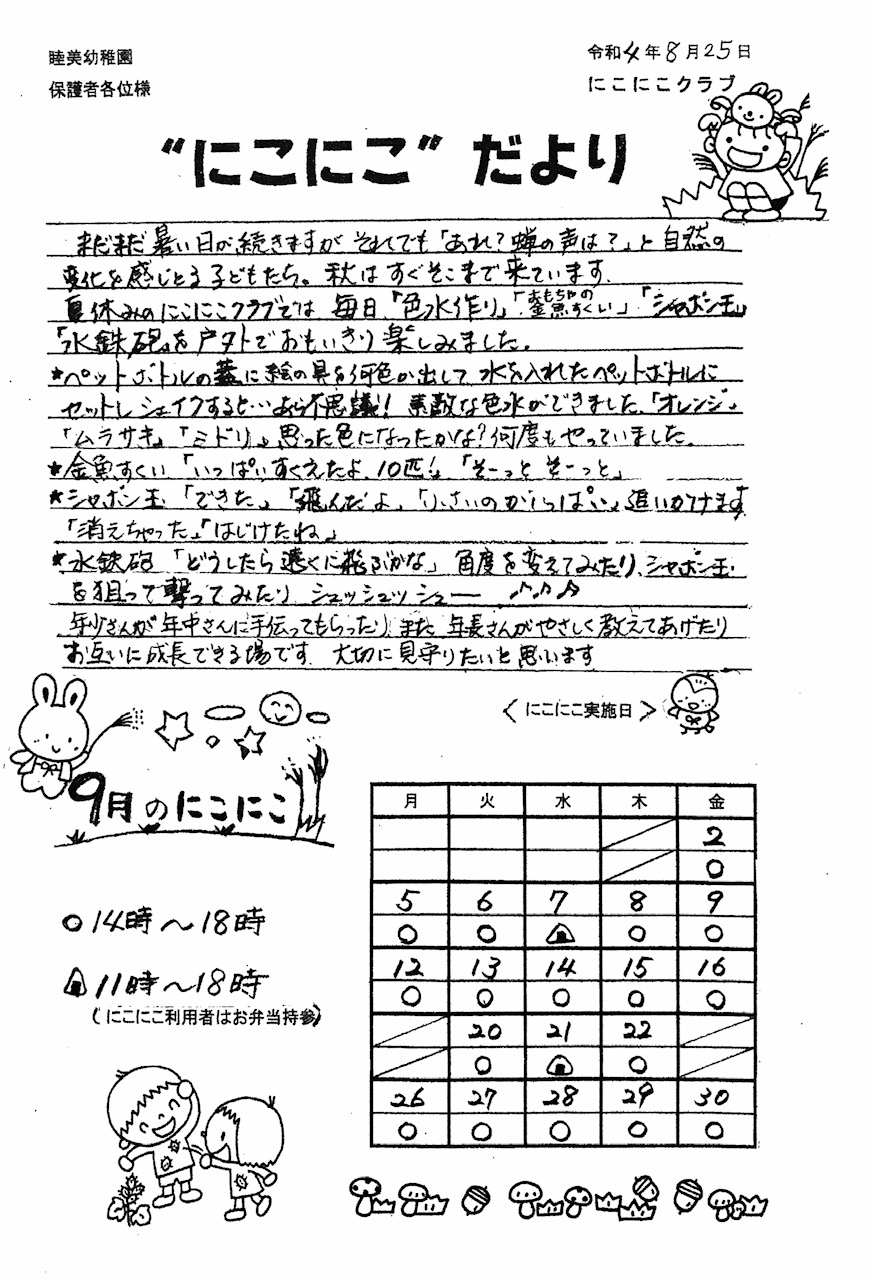 睦美幼稚園
保護者各位様
令和4年8月25日
にこにこクラブ
“にこにこ”だより
まだまだ暑い日が続きますが それでも「あれ?蝉の声は?」と自然の
変化を感じとる子どもたち。秋はすぐそこまで来ています.
夏休みのにこにこクラブでは 毎日、「色水作り」「おもちゃの金魚すくい」「シャボン玉」
「水鉄砲」を戸外でおもいきり楽しみました。
★ペットボトルの蓋に絵の具を何色か出して 水を入れたペットボトルに
セットし シェイクすると…あら不思議!! 素敵な色水ができました.「オレンジ」
「ムラサキ」「ミドリ」思った色になったかな?何度もやっていました。
★金魚すくい「いっぱいすくえたよ、10匹!」「そーっと そーっと」
★シャボン玉「できた」「飛んだよ」「小さいのがいっぱい」追いかけます
「消えちゃった」「はじけたね」
★水鉄砲「どうしたら遠くに飛ぶかな」角度を変えてみたり、シャボン玉
を狙って撃ってみたり シュッシュッシュー ♪♪♪
年少さんが年中さんに手伝ってもらったり、また 年長さんがやさしく教えてあげたり
お互いに成長できる場です 大切に見守りたいと思います
<にこにこ実施日>
9月のにこにこ
○14時〜18時
🍙11時〜18時
(にこにこ利用者はお弁当持参)
月 火 水 木 金
2
○
5 6 7 8 9
○ ○ 🍙 ○ ○
12 13 14 15 16
○ ○ ○ ○ ○
20 21 22
○ 🍙 ○
26 27 28 29 30
○ ○ ○ ○ ○